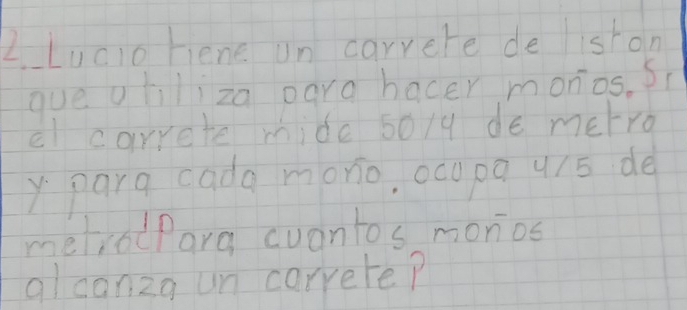 2. Lucio tiene un carrete de liston
que utiliza para hacer moños. Si
el carrete mide 50/4 de metro
y para cada moño. ocupa 4/5 de
metro ¿Para cuantos moños
alcanza un carrete?